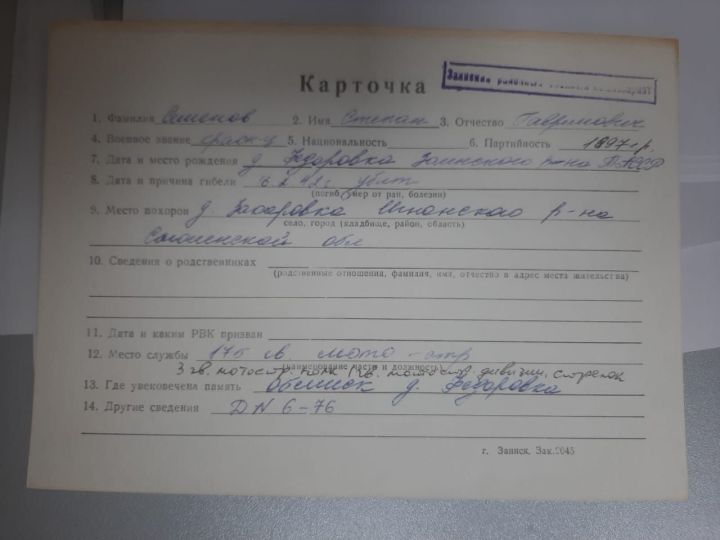 Карточка
Заинский районный военный комиссариат
1. Фамилия Семенов 2. Имя Степан 3. Отчество Гаврилович
4. Военное звание красн-ц 5. Национальность 6. Партийность 1897 г.р.
7. Дата и место рождения д. Федоровка Заинского р-на ТАССР
8. Дата и причина гибели 6.2.42г. убит
(погиб, умер от ран, болезни)
9. Место похорон д. Захаровка р-на
село, город (кладбище, район, область)
Смоленской обл
10. Сведения о родственниках
(родственные отношения, фамилия, имя, отчество и адрес места жительства)
11. Дата и каким РВК призван
12. Место службы 175 мото-стр
(наименование части и должность)
3 гв. мотостр. полк 1 гв. мотостр. дивизии, стрелок
13. Где увековечена память Обелиск д. Федоровка
14. Другие сведения DN 6-76
г. Заинск. Зак. 2045